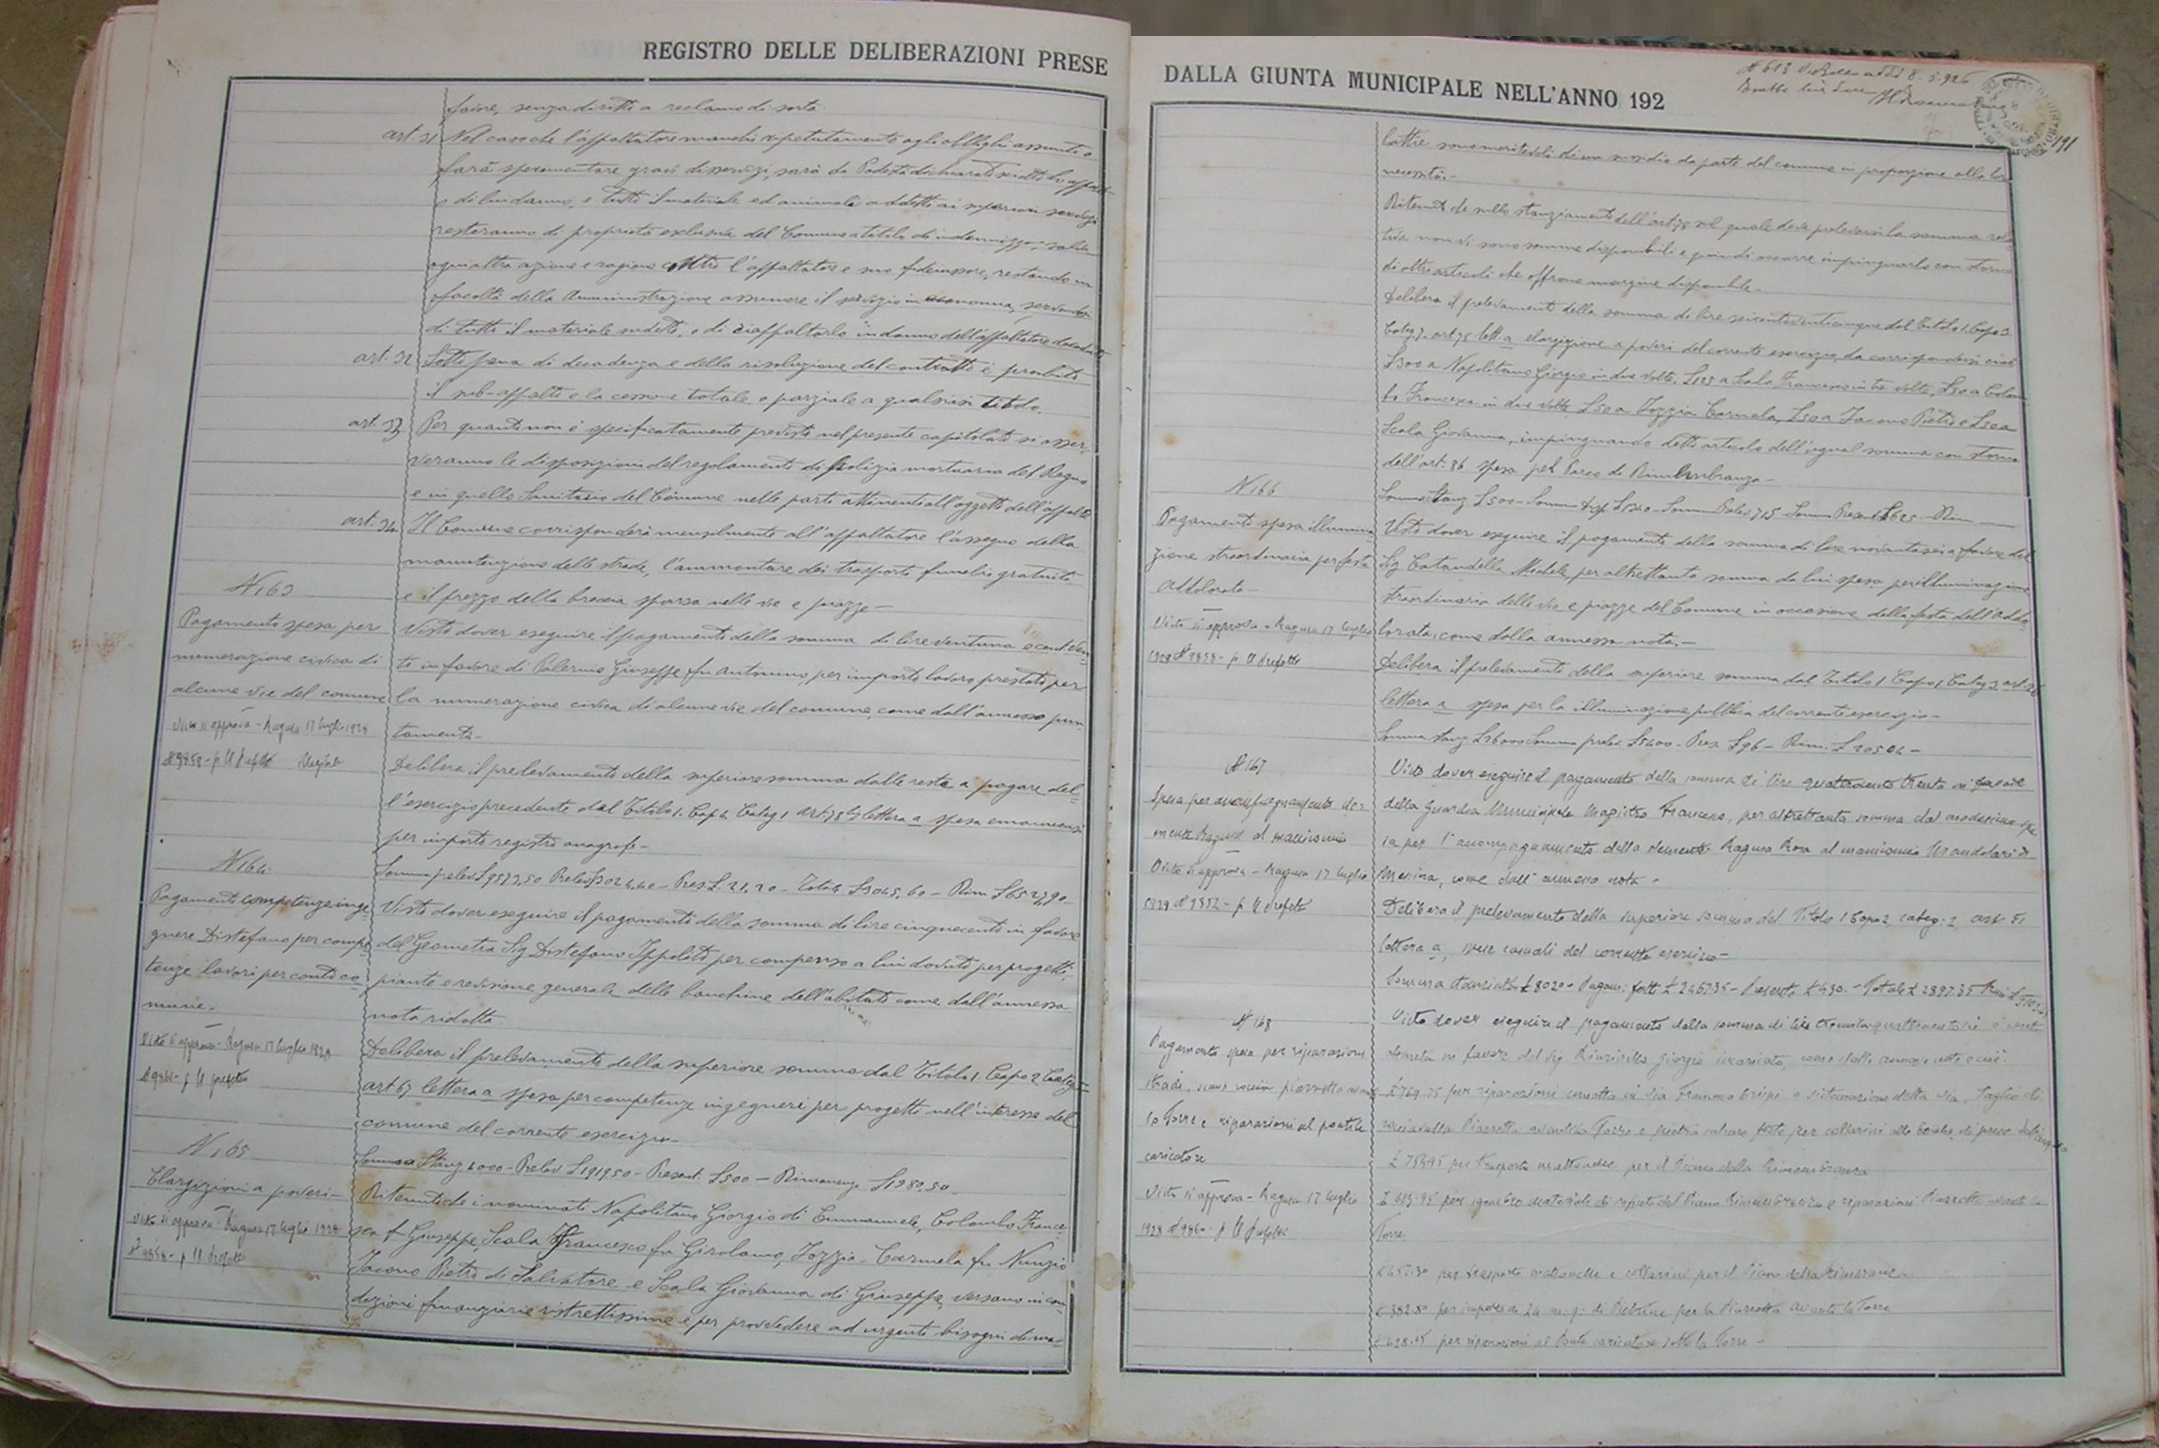 REGISTRO DELLE DELIBERAZIONI PRESE
favore, senza diritto a reclamo di sorta.
art. 31 Nel caso che l'appaltatore manchi ripetutamente agli obblighi assunti o
farà sperimentare gravi disservizi, sarà da Podestà dichiarato sciolto
di lui danno, e tutto il materiale ed animale addetto ai superiori
resteranno di proprietà esclusiva del Comune a titolo di indennizzo, salva
ogni altra azione e ragione contro l'appaltatore e suo fideiussore, restando in
facoltà della Amministrazione assumere il servizio in economia, servendosi
di tutto il materiale sudetto, o di riappaltarlo in danno dell'appaltatore
art. 32 Sotto pena di decadenza e della risoluzione del contratto è proibito
il sub-appalto e la cessione totale o parziale a qualsiasi titolo.
art. 33 Per quanto non è specificatamente previsto nel presente capitolato si osser
veranno le disposizioni del regolamento di polizia mortuaria del Regno
e in quello Sanitario del Comune nelle parti attinenti all'oggetto dell'appalto
art. 34 Il Comune corrisponderà mensilmente all'appaltatore l'assegno della
manutenzione delle strade, l'ammontare dei trasporti funebri gratuiti
e il prezzo della breccia sparsa nelle vie e piazze—
N 163
Pagamento spesa per
numerazione civica di
alcune vie del comune
Visto si approva - Ragusa 17 luglio 1928
p Il Prefetto
Visto dover eseguire il pagamento della somma di lire ventuna e cent ven
ti in favore di Palermo Giuseppe fu Antonino, per importo lavoro prestato per
la numerazione civica di alcune vie del comune, come dall'annesso pun
tamento.-
Delibera il prelevamento della superiore somma dalle reste a pagare del
l'esercizio precedente dal Titolo 1. Cap 4. Categ 1 art 78 lettera a spesa
per importo registro anagrafe—
21,20 - Totale £3045,60 - Rim £6527,90-
N 164.
Pagamento competenze inge
gnere Distefano per compe
tenze lavori per conto co
mune.
Visto si approva - Ragusa 17 luglio 1928
p Il prefetto
Visto dover eseguire il pagamento della somma di lire cinquecento in favore
del Geometra Sig Distefano Ippolito per compenso a lui dovuto per progetti,
piante e revisione generale delle banchine dell'abitato come dall'annessa
nota ridotta.
Delibera il prelevamento della superiore somma dal Titolo 1. Capo 2
art 67 lettera a spesa per competenze ingegneri per progetti nell'interesse del
comune del corrente esercizio—
Somma Stanz 4000 - Prelev £1919,50 - Present. £500 — Rimanenza £1580,50-
N 165
Elargizioni a poveri—
Visto si approva - Ragusa 17 luglio 1928
p Il Prefetto
Ritenuto che i nominati Napolitano Giorgio di Emmanuele, Colombo France
sca fu Giuseppe, Scala Francesco fu Girolamo, Iozzia Carmela fu Nunzio
Iacono Pietro di Salvatore e Scala Giovanna di Giuseppe, versano in con
dizioni finanziarie ristrettissime e per provvedere ad urgenti bisogni di ma-
DALLA GIUNTA MUNICIPALE NELL'ANNO 192
191
lattie sono meritevoli di un sussidio da parte del comune in proporzione alla loro
necessità.-
Ritenuto che nello stanziamento dell'art 78 sul quale deve prelevarsi la somma
non vi sono somme disponibili e quindi occorre impinguarlo con storno
di altri articoli che offrono margine disponibile.-
Delibera il prelevamento della somma di lire seicentoventicinque dal Titolo 1. Capo 3
Categ 7. art 78 lett a elargizione a poveri del corrente esercizio, da corrispondersi cioè
£300 a Napolitano Giorgio in due volte, a Scala Francesco in tre volte, £50 a Colom
bo Francesca in due volte £50 a Iozzia Carmela, £50 a Iacono Pietro e £50 a
Scala Giovanna, impinguando detto articolo dell'egual somma con storno
dell'art. 86 spesa pel Parco di Rimembranza—
N 166
Pagamento spesa illumina
zione straordinaria per festa
Addolorata-
Visto si approva - Ragusa 17 luglio
1928 p Il Prefetto
Visto dover eseguire il pagamento della somma di lire novantasei a favore del
Sig Catandella Michele, per altrettanta somma da lui spesa per illuminazione
straordinaria delle vie e piazze del Comune in occasione della festa dell'Addo
lorata, come dalla annessa nota.—
Delibera il prelevamento della superiore somma dal Titolo 1 Capo 1 Categ 3
lettera a spesa per la illuminazione pubblica del corrente esercizio-
Somma stanz £26000 Somma prelev £5400 - Pres £96 - Rim. £ 20504 -
N 167
Spesa per accompagnamento de
mente Ragusa al manicomio
Visto si approva - Ragusa 17 luglio
1928 p Il Prefetto
Visto dover eseguire il pagamento della somma di lire quattrocento trenta in favore
della Guardia Municipale Magistro Francesco, per altrettanta somma dal medesimo spe
sa per l'accompagnamento della demente Ragusa Rosa al manicomio Mandalari di
Messina, come dall'annessa nota -
Delibera il prelevamento della superiore somma dal Titolo 1 Capo 2 categ. 2, art. 51
lettera a, spese casuali del corrente esercizio-
Somma stanziata £ 8020 - Pagam. fatti £ 2467.35 - Presente £ 430. - Totale £ 2897.35
N 168
Pagamento spesa per riparazioni
piazzetta avan
ti Torre e riparazioni al pontile
caricatore
Visto si approva - Ragusa 17 luglio
1928 p Il prefetto
Visto dover eseguire il pagamento della somma di lire
in favore del Sig. Giorgio incaricato, come dalle annesse note e cioè
£ 769.75 per riparazioni in via Francesco Crispi e sistemazione della via, taglio di
Piazzetta avanti la Torre e pietra calcare
per trasporto mattonelle per il Piano della Rimembranza
£ 613.95 per sgombro materiale di rifiuto del Piano Rimembranza e riparazioni Piazzetta avanti la
Torre
per trasporto mattonelle e per il Piano della Rimembranza
£ 392.80 per importo di 24 m.q. di per la Piazzetta avanti la Torre
per riparazioni al Ponte caricatore sotto la Torre -